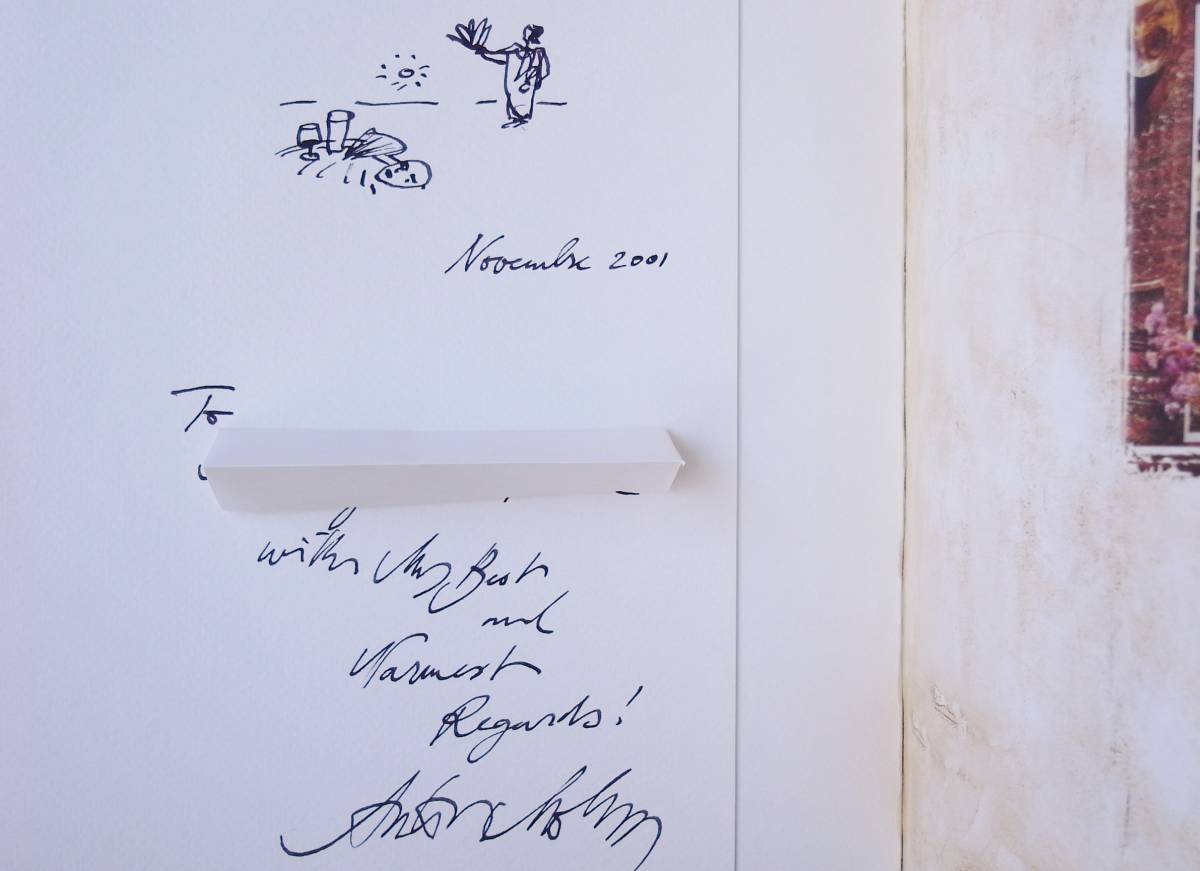 November 2001
To
with My Best
and
Warmest
Regards!